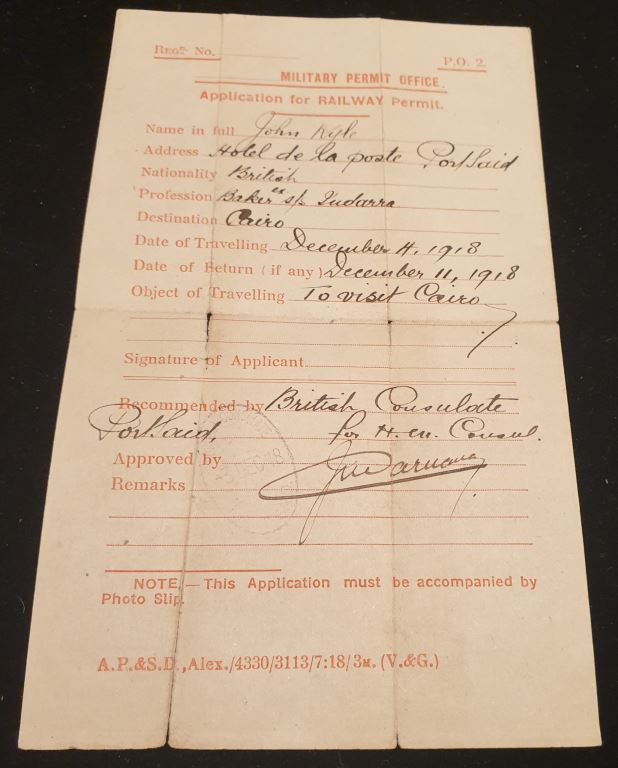 REGD. No.
P.O. 2.
MILITARY PERMIT OFFICE.
Application for RAILWAY Permit.
Name in full John Kyle
Address Hotel de la poste Port Said
Nationality British
Profession Baker ex s/s
Destination Cairo
Date of Travelling December 4, 1918
Date of Return (if any) December 11, 1918
Object of Travelling To visit Cairo
Signature of Applicant
Recommended by British Consulate
Port Said. for H.M. Consul.
Approved by
Remarks
NOTE.—This Application must be accompanied by
Photo Slip.
A.P.&S.D.,Alex./4330/3113/7:18/3M. (V.&G.)